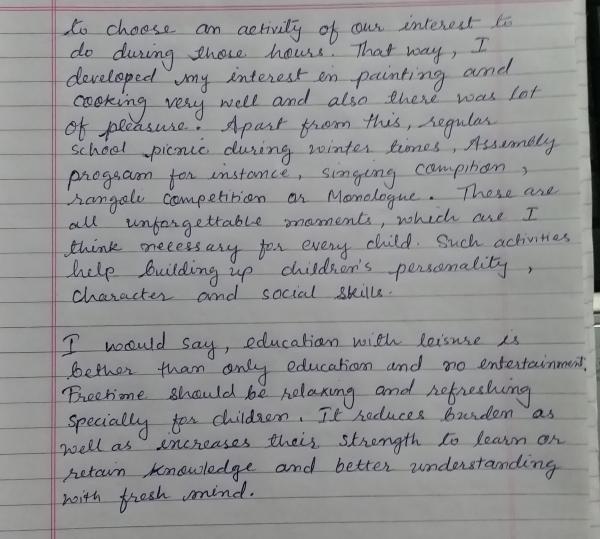 to choose an activity of our interest to
do during those hours. That way, I
developed my interest in painting and
cooking very well and also there was lot
of pleasure. Apart from this, regular
school picnic during winter times, Assembly
program for instance, singing compition,
rangoli competition or Monologue. These are
all unforgettable moments, which are I
think necessary for every child. Such activities
help building up children's personality,
character and social skills.
I would say, education with leisure is
bether than only education and no entertainment.
Freetime should be relaxing and refreshing
specially for children. It reduces burden as
well as increases their strength to learn or
retain knowledge and better understanding
with fresh mind.